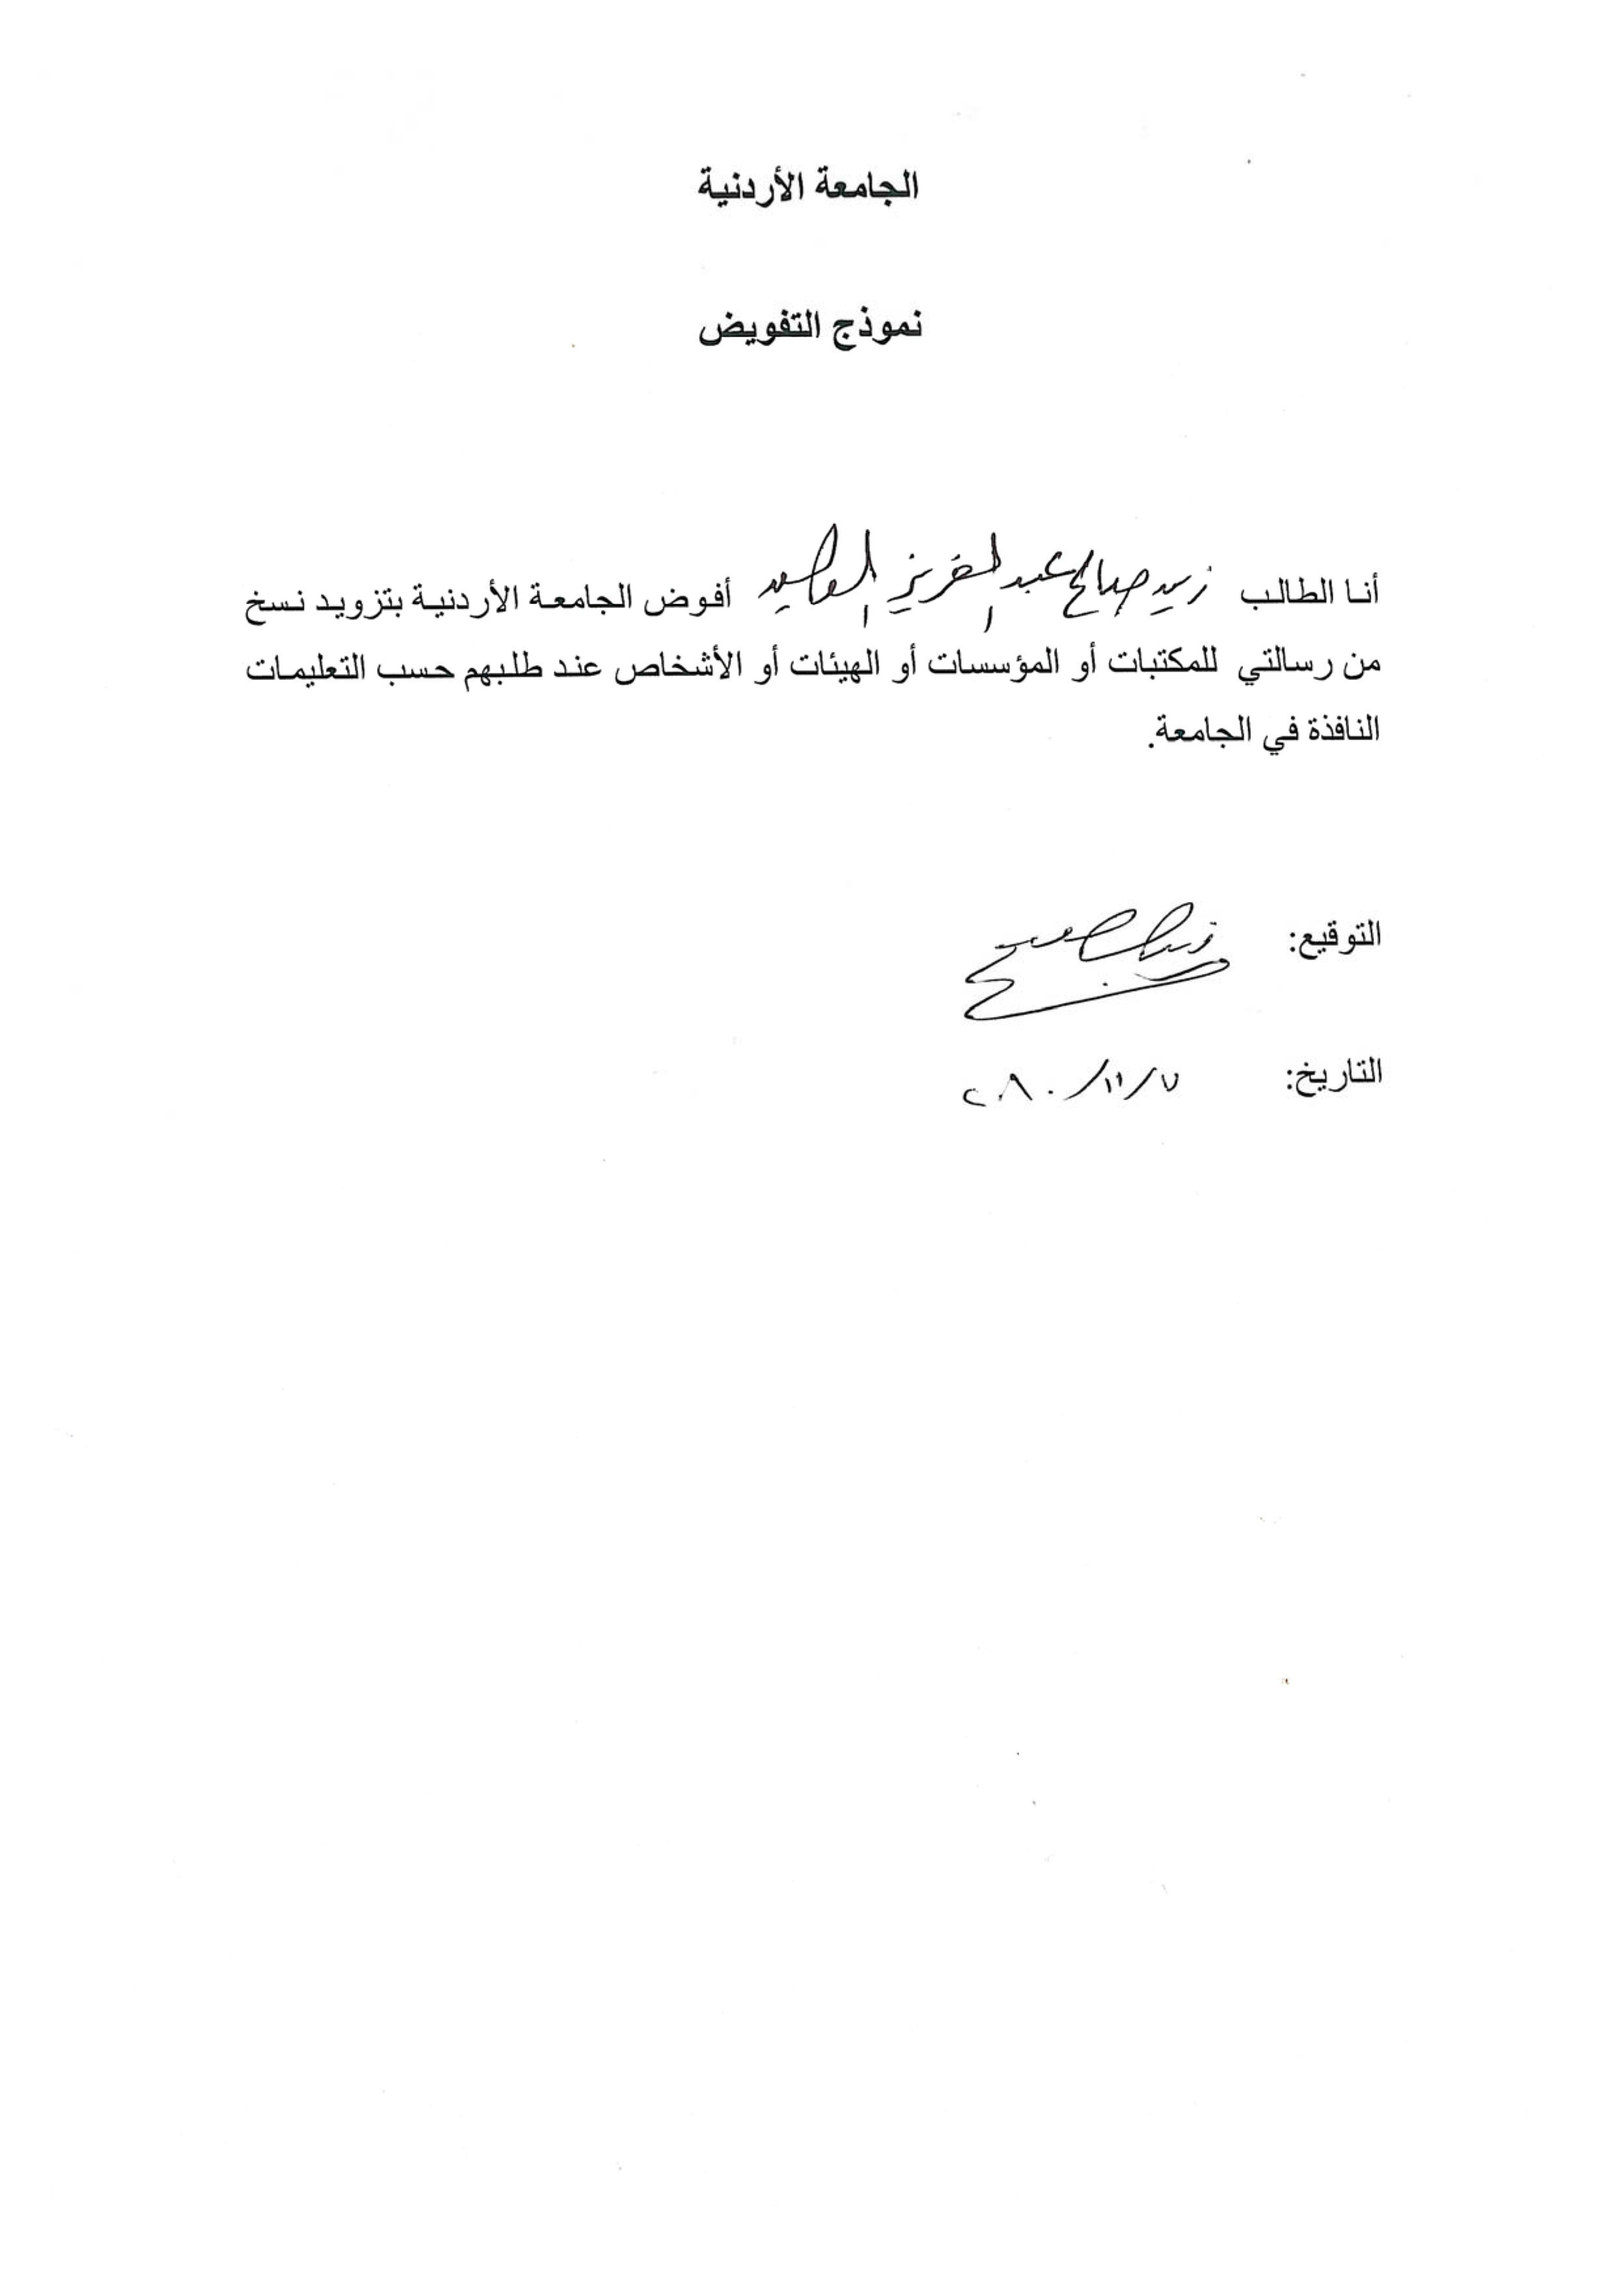 الجامعة الأردنية
نموذج التفويض
أنا الطالب زيد صالح عبد العزيز أفوض الجامعة الأردنية بتزويد نسخ
من رسالتي للمكتبات أو المؤسسات أو الهيئات أو الأشخاص عند طلبهم حسب التعليمات
النافذة في الجامعة.
التوقيع:
التاريخ: